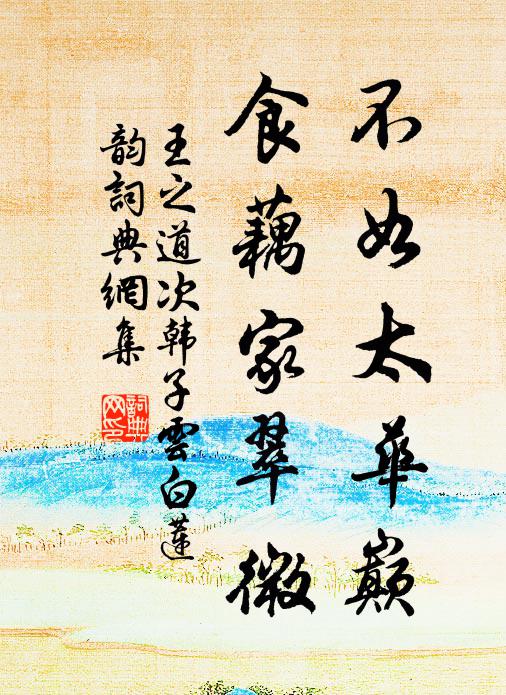 不如太華巔
食藕家翠微
王之道次韩子雲白蓮
韵詞典網集
詞典網印